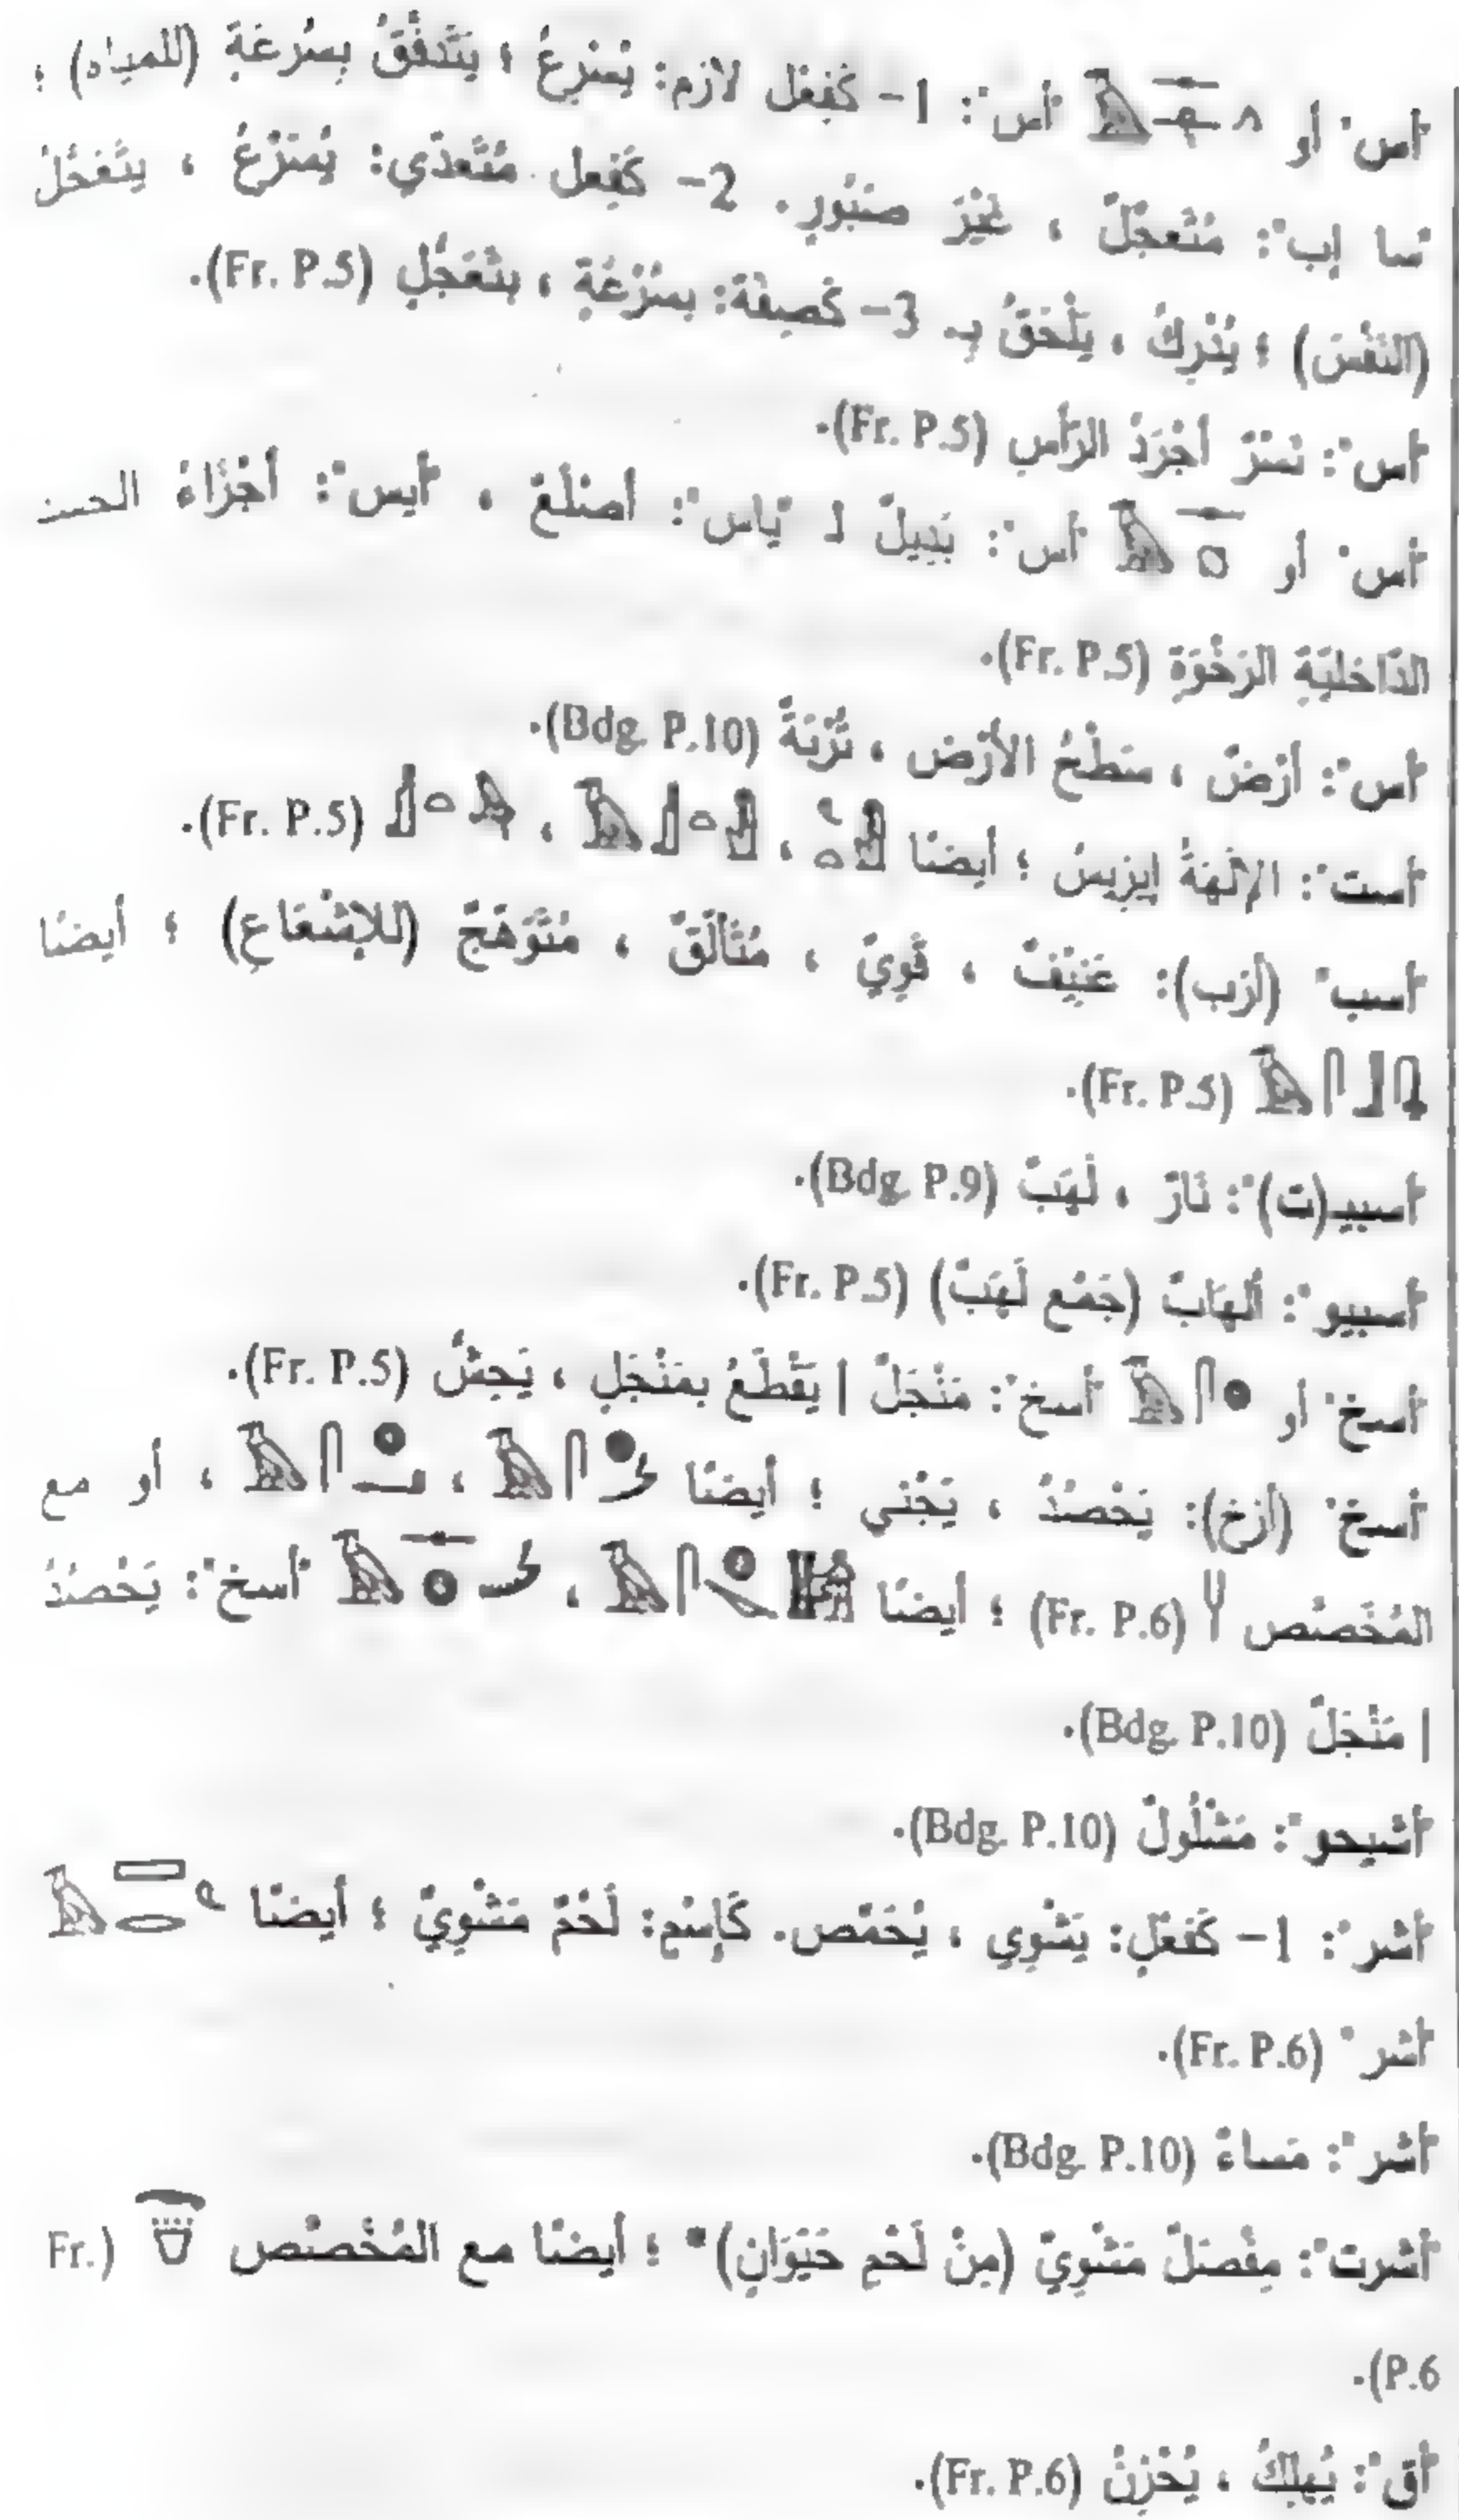 "أس" أو 𓄿𓊃𓌫𓂻 "أس": 1- كَفِعْل لازم: يُسْرِعُ ، يَتَدَفَّقُ بِسُرعَةٍ (للمياه) ؛
"سا إب": مُتَعجِّلٌ ، غَيْرَ صَبُورٍ. 2- كَفِعل مُتَعدّي: يُسَرِّعُ ، يتَعَجَّلُ
(النَفْسَ) ؛ يُدْرِكُ ، يَلْحَقُ بِـ 3- كَصِفَة: بِسُرْعَةٍ ، بتَعَجُّلٍ (Fr. P.5).
"أس": نَسْرٌ أجْرَدُ الرَأسِ (Fr. P.5).
"أس" أو "أس": بَدِيلٌ لـ "ياس": أصْلَعَ ، "أيس": أجْزَاءُ
الدَاخليَةِ الرَخْوَةِ (Fr. P.5).
"أس": أرْضٌ ، سَطْحُ الأرْضِ ، تُرْبَةٌ (Bdg. P.10).
"أست": الإلَهَةُ إيزيسُ ؛ أيضًا ، ، (Fr. P.5).
"أسب" (أزب): عَنِيْفٌ ، قَوِيٌ ، مُتَألِّقٌ ، مُتَوَهِّجٌ (للإشْعَاعِ) ؛ أيضًا
𓄿𓋴𓃀 (Fr. P.5)
"أسبيـ(ت)": نَارٌ ، لَهَبٌ (Bdg. P.9).
"أسبيو": ألهَابٌ (جَمْع لَهَبٌ) (Fr. P.5).
"أسخ" أو 𓄿𓋴𓐍 "أسخ": مَنْجَلٌ | يَقْطَعُ بمَنْجَلٍ ، يَجِشُّ (Fr. P.5).
"أسخ" (أزخ): يَحْصُدُ ، يَجْني ؛ أيضًا 𓄿𓋴𓐍𓌳 ، 𓄿𓋴𓐍𓂝 ، أو مع
المُخَصِصْص (Fr. P.6) ؛ أيضًا ، 𓄿𓊃𓐍𓌳 "أسخ": يَحْصُدُ
| مَنْجَلٌ (Bdg. P.10).
"أشيحو": مَشْلُولٌ (Bdg. P.10).
"أشر": 1- كَفعْلٍ: يَشْوِي ، يُحَمِّص. كَإسْمٍ: لَحْمٌ مَشْوِيٌ ؛ أيضًا 𓄿𓈙𓂋
"أشر" (Fr. P.6).
"أشر": مَساءٌ (Bdg. P.10).
"أشرت": مِفْصَلٌ مَشْوِيٌ (مِنْ لَحْمِ حَيَوَانٍ)* ؛ أيضًا مع المُخْصِصْص (Fr.
P.6).
"أق": يُهلِكُ ، يُحْزِنُ (Fr. P.6).